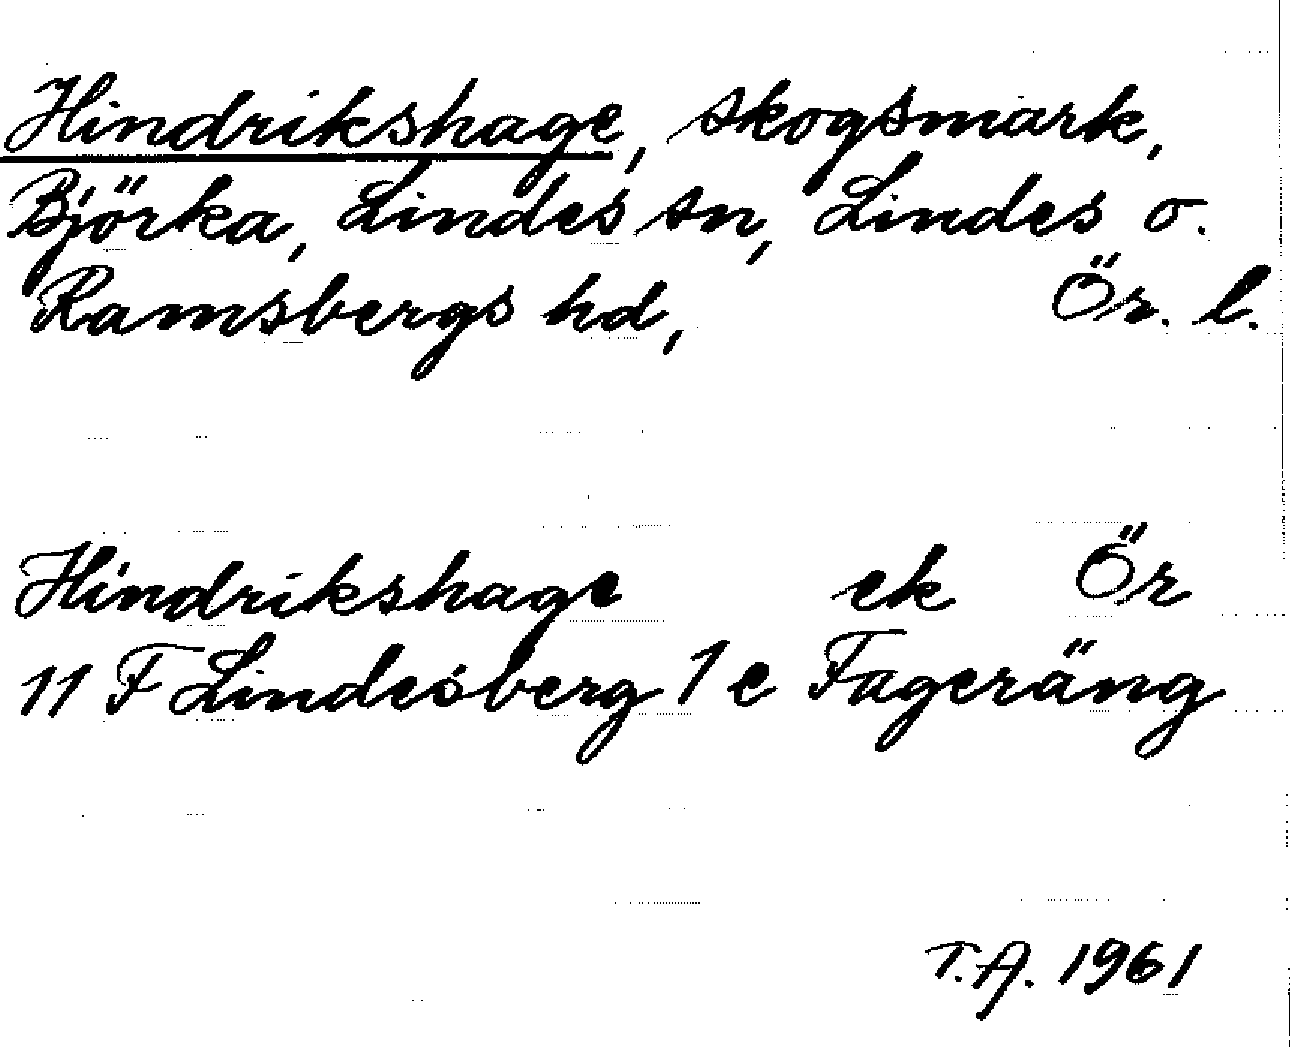 Hindrikshage, skogsmark,
Björka, Lindes sn, Lindes o.
Ramsbergs hd, Ör. l.
Hindrikshage ek Ör
11 F Lindesberg 1 e Fageräng
T.A. 1961